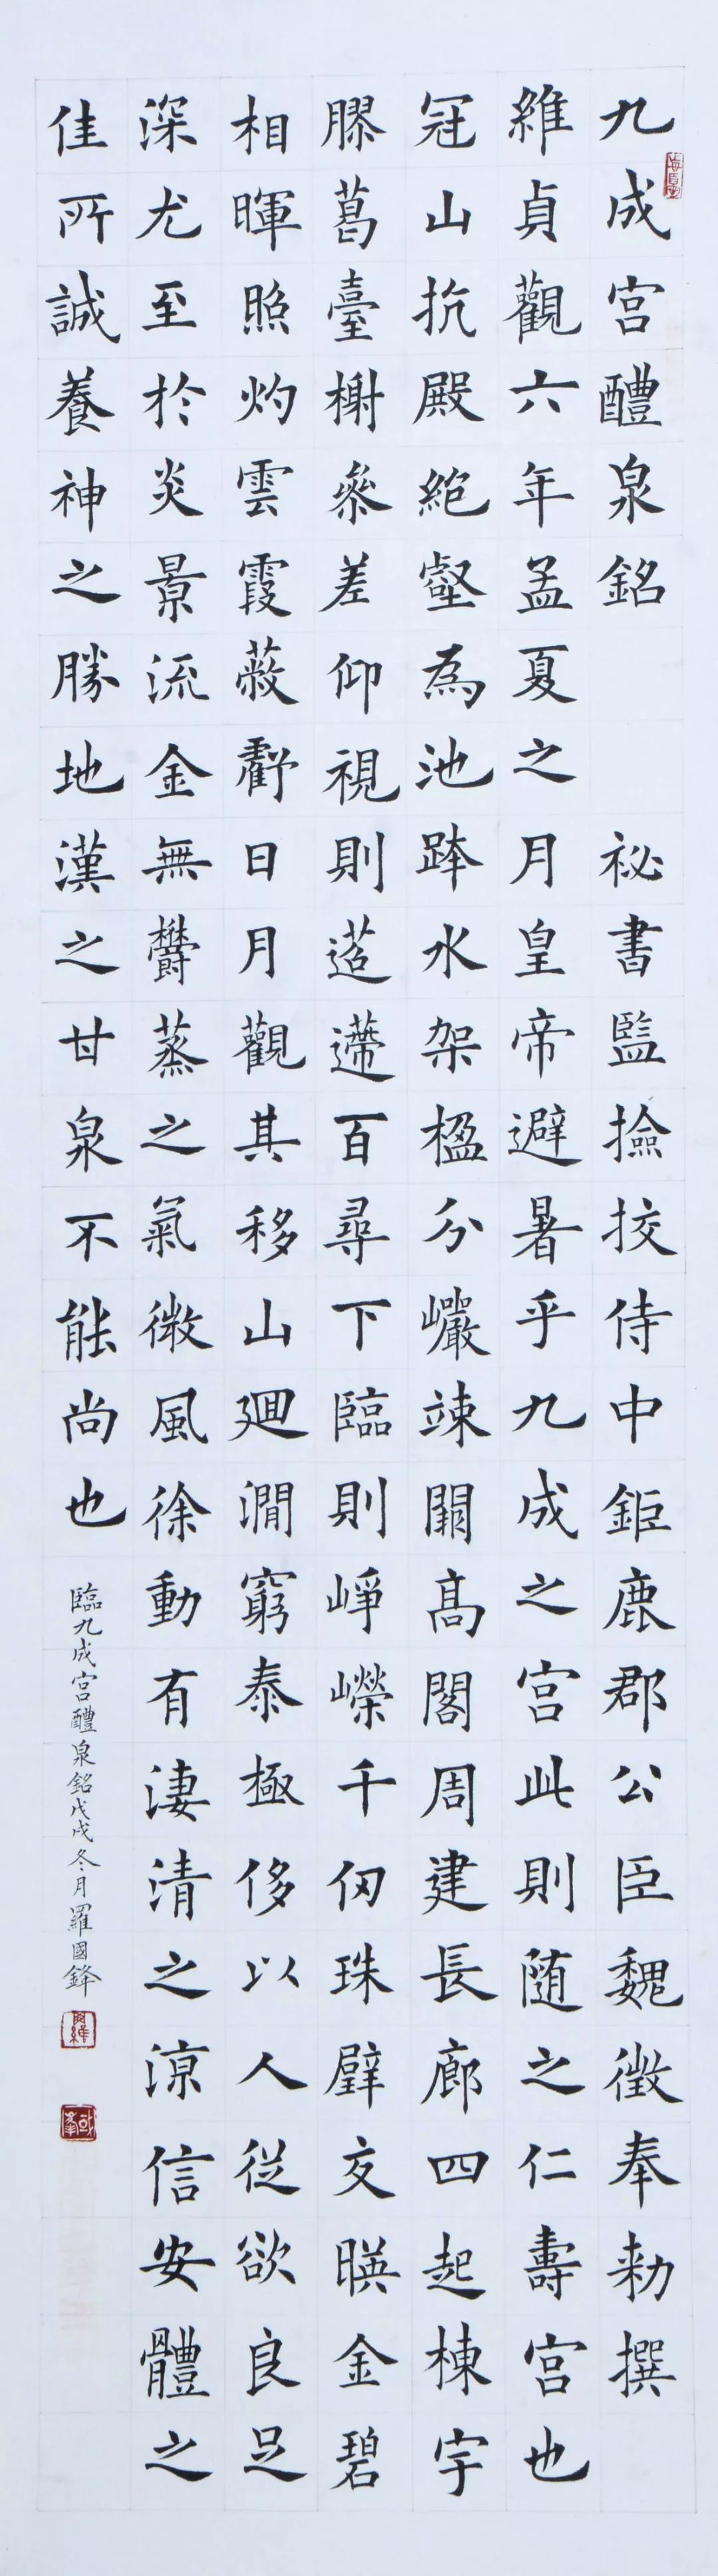 九成宮醴泉銘 祕書監撿挍侍中鉅鹿郡公臣魏徵奉勅撰
維貞觀六年孟夏之月皇帝避暑乎九成之宮此則随之仁壽宮也
冠山抗殿絶壑為池跨水架楹分巖竦闕高閣周建長廊四起棟宇
膠葛臺榭叅差仰視則迢遰百尋下臨則崢嶸千仞珠璧交暎金碧
相暉照灼雲霞蔽虧日月觀其移山廻澗窮泰極侈以人從欲良足
深尤至於炎景流金無欝蒸之氣微風徐動有淒清之涼信安體之
佳所誠養神之勝地漢之甘泉不能尚也
臨九成宮醴泉銘戊戌冬月羅國鋒